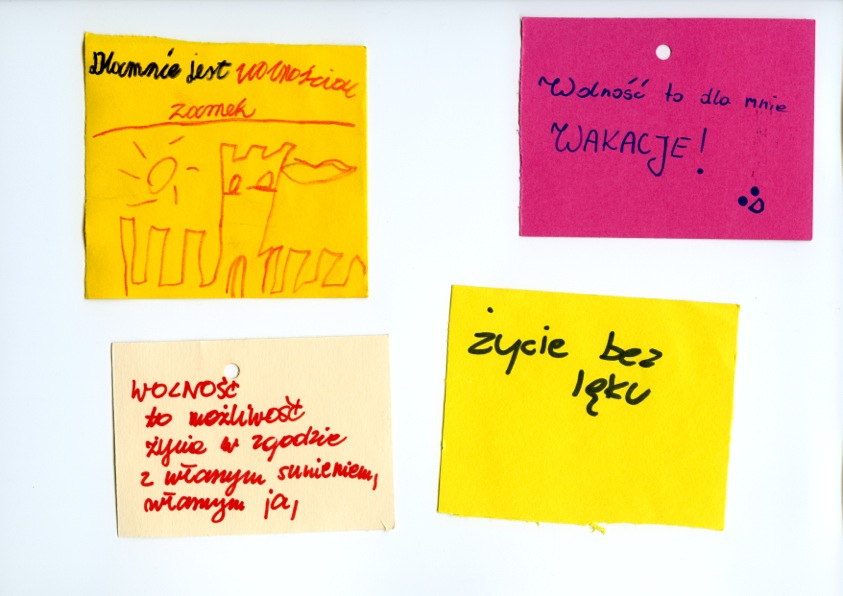 Dla mnie jest wolnością
zamek
Wolność to dla mnie
WAKACJE!
WOLNOŚĆ
to możliwość
życia w zgodzie
z własnym sumieniem,
własnym ja,
życie bez
lęku